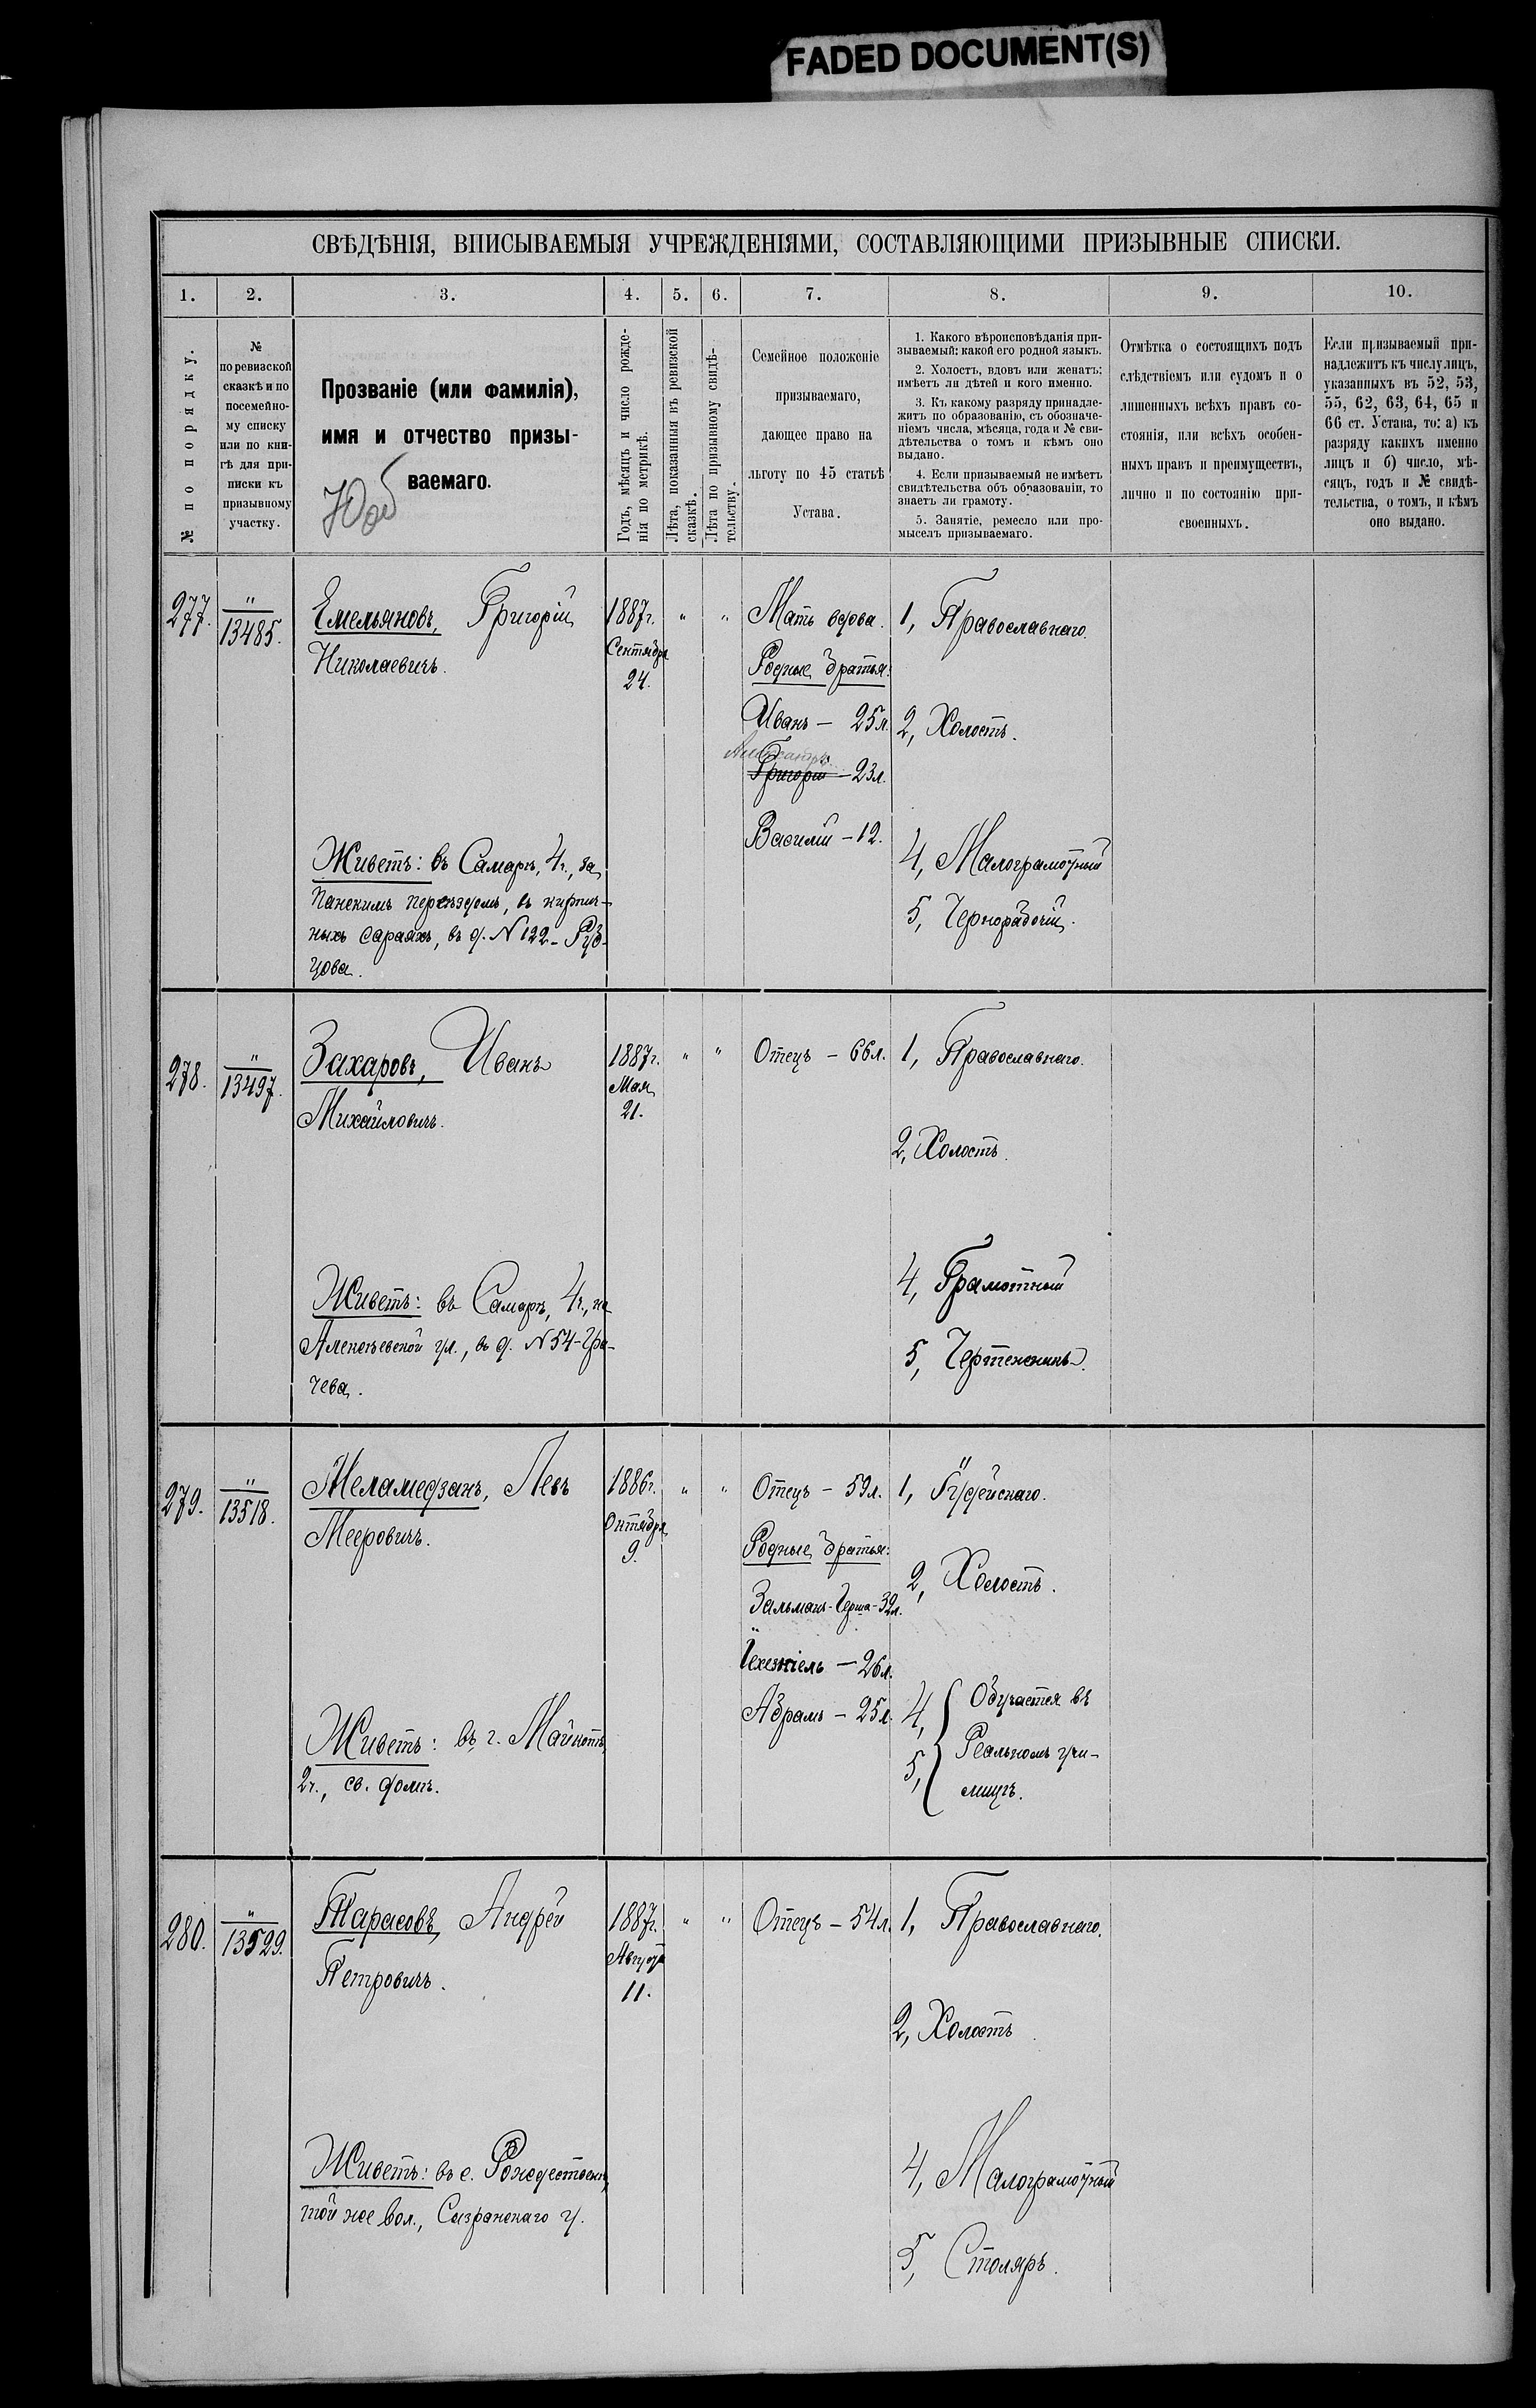 FADED DOCUMENT(S)
СВѢДѢНІЯ, ВПИСЫВАЕМЫЯ УЧРЕЖДЕНІЯМИ, СОСТАВЛЯЮЩИМИ ПРИЗЫВНЫЕ СПИСКИ.
1. 2. 3. 4. 5. 6. 7. 8. 9. 10.
№ по порядку.
№
по ревизской
сказкѣ и по
посемейно-
му списку
или по кни-
гѣ для при-
писки къ
призывному
участку.
Прозваніе (или фамилія),
имя и отчество призы-
ваемаго.
Годъ, мѣсяцъ и число рожде-
нія по метрикѣ.
Лѣта, показанныя въ ревизской
сказкѣ.
Лѣта по призывному свидѣ-
тельству.
Семейное положеніе
призываемаго,
дающее право на
льготу по 45 статьѣ
Устава.
1. Какого вѣроисповѣданія при-
зываемый: какой его родной языкъ.
2. Холостъ, вдовъ или женатъ:
имѣетъ ли дѣтей и кого именно.
3. Къ какому разряду принадле-
житъ по образованію, съ обозначе-
ніемъ числа, мѣсяца, года и № сви-
дѣтельства о томъ и кѣмъ оно
выдано.
4. Если призываемый не имѣетъ
свидѣтельства объ образованіи, то
знаетъ ли грамоту.
5. Занятіе, ремесло или про-
мыселъ призываемаго.
Отмѣтка о состоящихъ подъ
слѣдствіемъ или судомъ и о
лишенныхъ всѣхъ правъ со-
стоянія, или всѣхъ особен-
ныхъ правъ и преимуществъ,
лично и по состоянію при-
своенныхъ.
Если призываемый при-
надлежитъ къ числу лицъ,
указанныхъ въ 52, 53,
55, 62, 63, 64, 65 и
66 ст. Устава, то: а) къ
разряду какихъ именно
лицъ и б) число, мѣ-
сяцъ, годъ и № свидѣ-
тельства, о томъ, и кѣмъ
оно выдано.
277.
"
13485.
Емельяновъ, Григорій
Николаевичъ.
Живетъ: въ Самарѣ, 4ч., за
Панскимъ переѣздомъ, въ кирпич-
ныхъ сараяхъ, въ д. N 122 - Руб-
цова.
1887г.
Сентября
24.
" "
Мать вдова.
Родные братья:
Иванъ — 25л.
Александръ
Григорій — 23л.
Василій — 12.
1, Православнаго.
2, Холостъ.
4, Малограмотный
5, Чернорабочій.
278.
"
13497.
Захаровъ, Иванъ
Михайловичъ.
Живетъ: въ Самарѣ, 4ч., на
Алексѣевской ул., въ д. N 54 - Гра-
чева.
1887г.
Мая
21.
" "
Отецъ — 66л.
1, Православнаго.
2, Холостъ.
4, Грамотный
5, Чертежникъ.
279.
"
13518.
Меламедзанъ, Левъ
Мееровичъ.
Живетъ: въ г. Майкопѣ,
2ч., св. домъ.
1886г.
Октября
9.
" "
Отецъ — 59л.
Родные братья:
Зальманъ-Герша - 32л.
Іехезкіель — 26л.
Абрамъ — 25л.
1, Іудейскаго.
2, Холостъ.
4, 5, Обучается въ
Реальномъ учи-
лищѣ.
280.
"
13529.
Тарасовъ, Андрей
Петровичъ.
Живетъ: въ с. Рождествень,
той же вол., Сызранскаго у.
1887г.
Августа
11.
" "
Отецъ — 54л.
1, Православнаго.
2, Холостъ
4, Малограмотный
5, Столяръ.